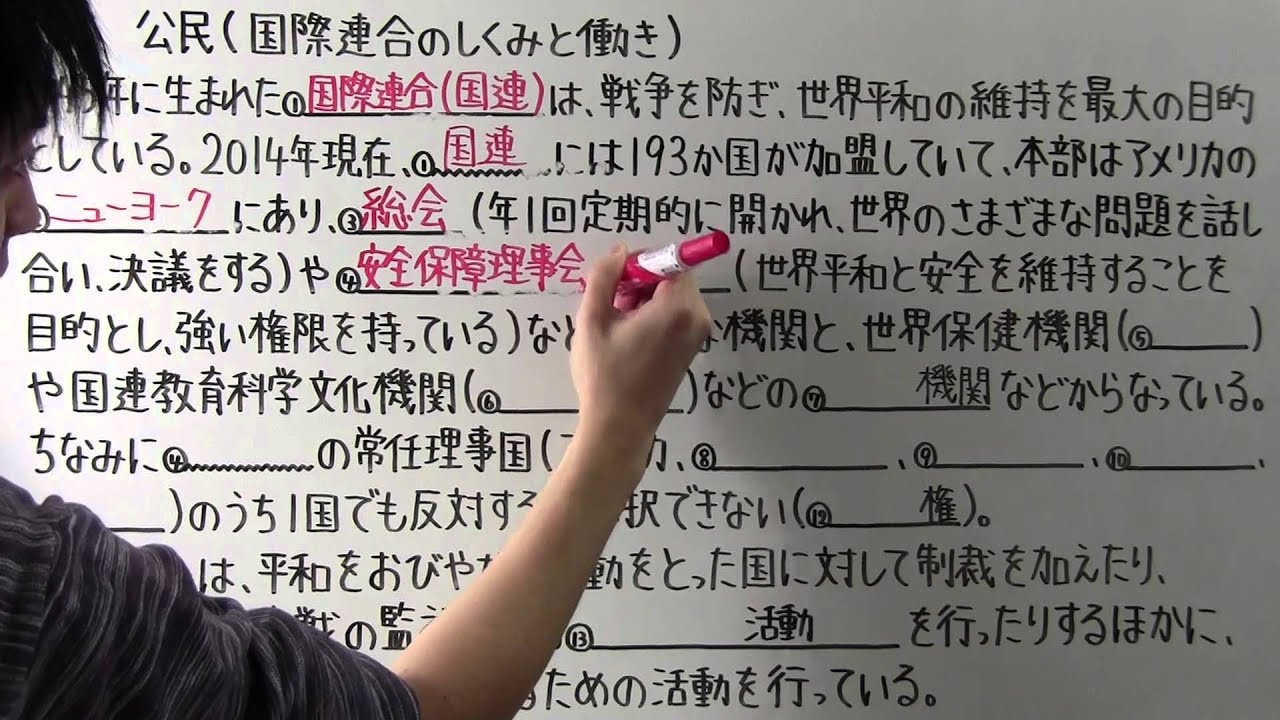 公民(国際連合のしくみと働き)
年に生まれた①国際連合(国連)は、戦争を防ぎ、世界平和の維持を最大の目的
としている。2014年現在、①国連には193か国が加盟していて、本部はアメリカの
ニューヨークにあり、③総会(年1回定期的に開かれ、世界のさまざまな問題を話し
合い、決議をする)や④安全保障理事会(世界平和と安全を維持することを
目的とし、強い権限を持っている)など な機関と、世界保健機関(⑤ )
や国連教育科学文化機関(⑥ )などの⑦ 機関などからなっている。
ちなみに④ の常任理事国( 、⑧ 、⑨ 、⑩ 、
)のうち1国でも反対する 択できない(⑫ 権)。
は、平和をおびやか 動をとった国に対して制裁を加えたり、
戦の監 ⑬ 活動を行ったりするほかに、
るための活動を行っている。